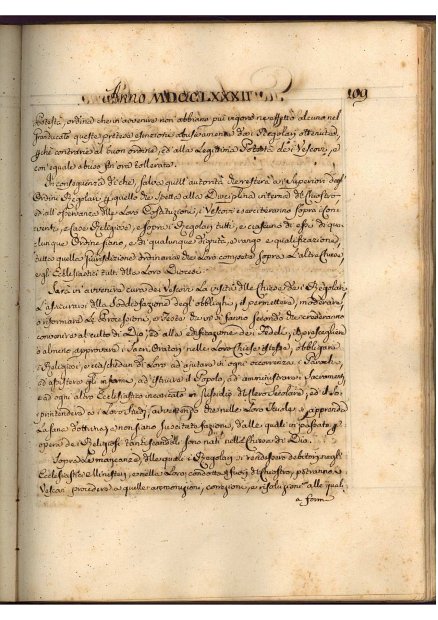 Anno MDCCLXXXII
109
Potestà, ordina che in avvenire non abbiano più vigore ne effetto alcuno nel
Granducato queste pretese esenzioni abusivamente dai Regolari ottenute,
perche contrarie al buon ordine, ed alla Legittima Potestà dei Vescovi, e
con egual abuso fin ora tollerate.
In conseguenza di che, salva quell'autorità che resterà ai Superiori degl'
Ordini Regolari per quello che spetta alla Disciplina interna di Chiostro,
ed all'osservanza delle Loro Costituzioni, i Vescovi eserciteranno sopra i Con-
venti, e Case Religiose, e sopra i Regolari tutti, e ciascuno di essi di qua-
lunque Ordine siano, e di qualunque dignità, o rango e qualificazione,
tutta quella Giurisdizione ordinaria che Loro compete sopra L'altre Chiese,
e gli Ecclesiastici tutti della Loro Diocesi.
Sarà in avvenire cura dei Vescovi La visita delle Chiese dei Regolari,
L'assicurarsi della soddisfazione degli obblighi, il permettere, moderare,
o riformare Le Processioni, e Feste che vi si fanno secondo che crederanno
convenire al culto di Dio, ed alla edificazione dei Fedeli; il prescegliere
o almeno approvare i Sacri Oratori nelle Loro Chiese istesse, obbligare
i Religiosi, e richiedergli di Loro ad ajutare in ogni occorrenza i Parochi,
ed assistere gli infermi, ad istruire il Popolo, ad amministrare i Sacramenti,
e ad ogni altro Ecclesiastico incarico in sussidio del Clero Secolare, ed il So-
printendere ai Loro Studj, avvertendo che nelle Loro Scuole si apprenda
La sana dottrina, e non siano suscitate fazioni, dalle quali in passato per
opera dei Religiosi tanti scandali sono nati nella Chiesa di Dio.
Sopra Le mancanze, delle quali i Regolari si rendessero debitori negli
Ecclesiastici Ministeri, e nella Loro condotta fuori di Chiostro, potranno i
Vescovi procedere a quelle ammonizioni, correzioni, e risoluzioni alle quali
a form